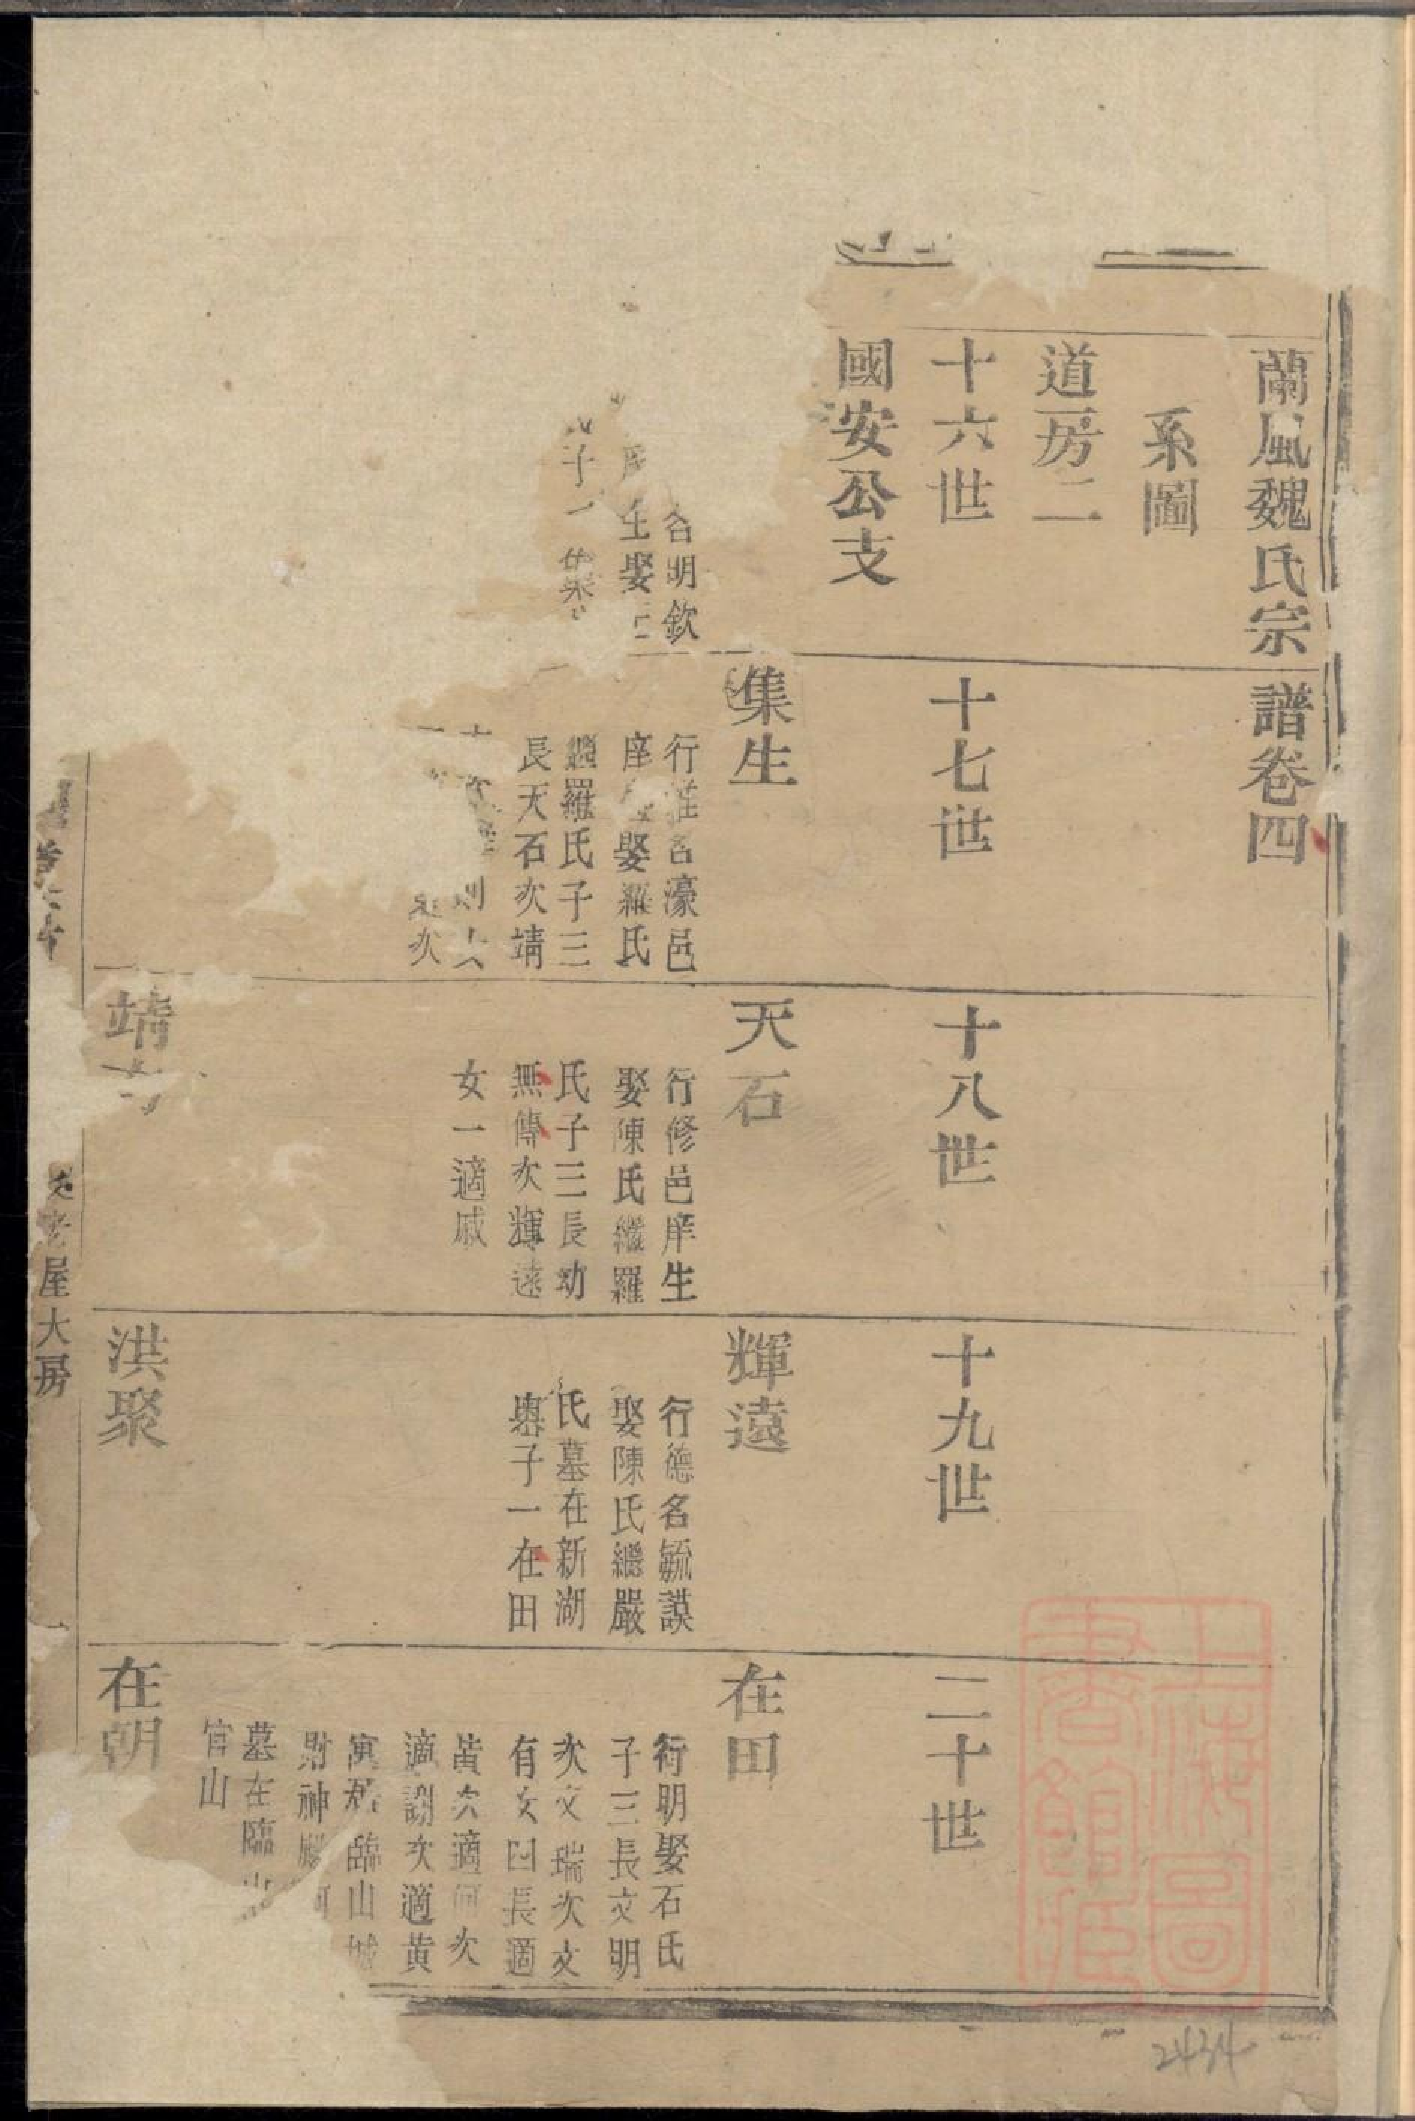 蘭風魏氏宗譜卷四
系圖
道房二
十六世
十七世
十八世
十九世
二十世
國安公支
名明欽
生娶
子一集
集生
行名濠邑
庠娶羅氏
繼羅氏子三
長天石次靖
次
天石
行修邑庠生
娶陳氏繼羅
氏子三長幼
無傳次輝遠
女一適戚
輝遠
行德名毓謨
娶陳氏繼嚴
氏墓在新湖
嶴子一在田
在田
行明娶石氏
子三長文明
次文瑞次文
有女四長適
黃次適何次
適謝次適黃
寓居臨山城
財神
墓在臨山
官山
靖
洪聚
在朝
老屋大房
上海圖書館藏
2434